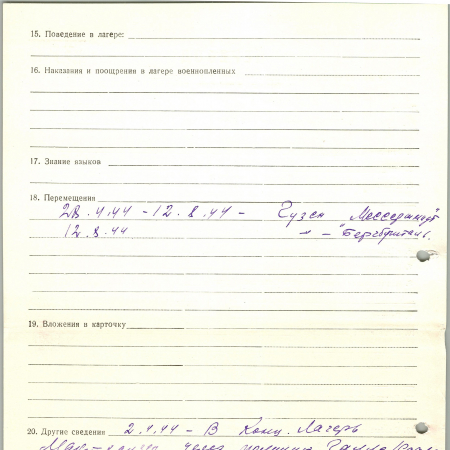 15. Поведение в лагере:
16. Наказания и поощрения в лагере военнопленных
17. Знание языков
18. Перемещения
28.4.44 - 12.8.44 - Гузен "Мессершмидт"
12.8.44 " -
19. Вложения в карточку
20. Другие сведения 2.4.44 - В Конц. Лагерь
через